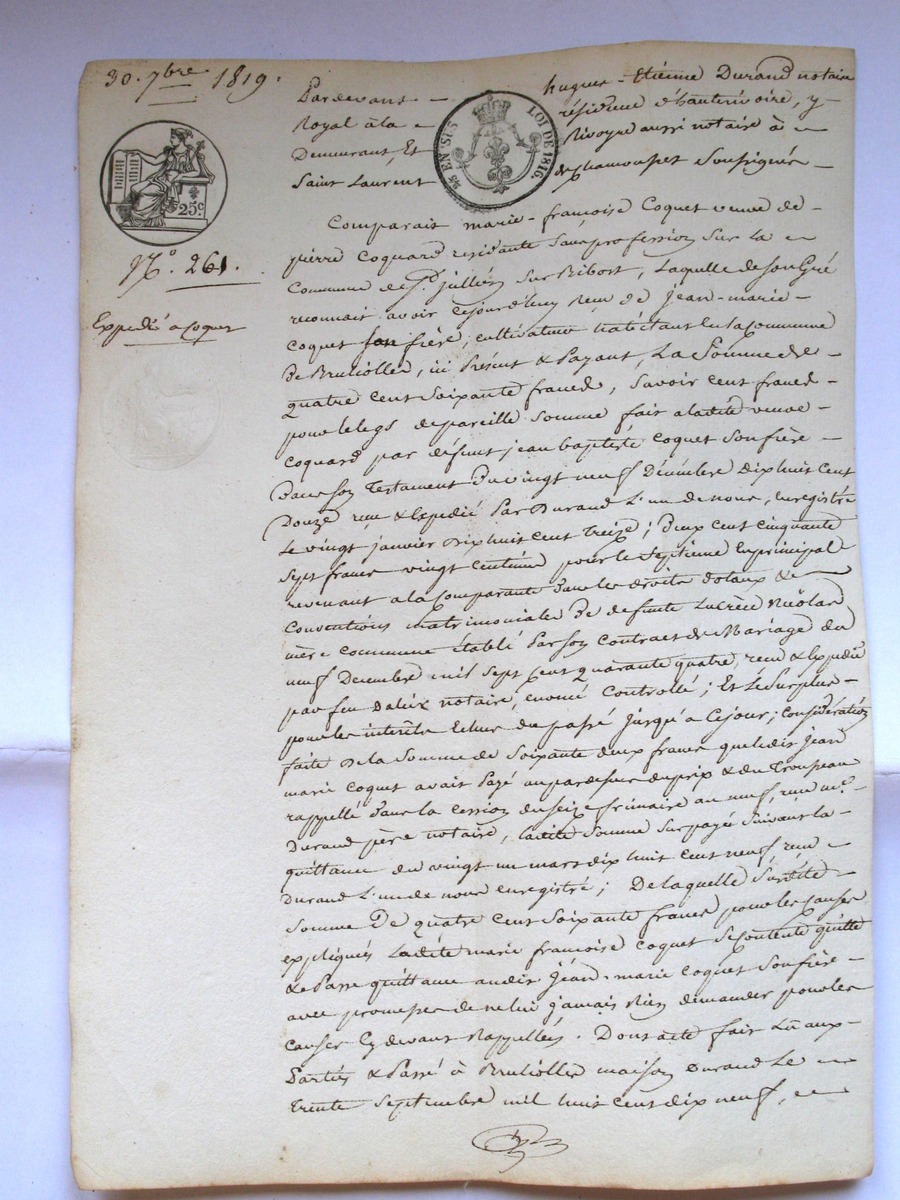 30. 7bre 1819.
25c
No. 261.
Expédié a Coquet
25 EN SUS LOI DE 1816.
Pardevant hugues-Etienne Durand notaire
Royal à la résidence d'hauterivoire, y
Demeurant, Et Rivoyre aussi notaire à
Saint Laurent de Chamousset Soussignés
Comparait marie-françoise Coquet veuve de
pierre Coquard residante Sans profession Sur la
Commune de St. jullien Sur Bibost, Laquelle de Son Gré
reconnait avoir Cejourd'huy reçu de jean-marie
Coquet Son frère, cultivateur habitant En la Commune
de Brullioles, ici Présent & Payant, La Somme de
quatre cent Soixante francs, Savoir cent francs
pour le legs de pareille Somme fait a ladite veuve
Coquard par défunt jean baptiste Coquet Son frère
Dans Son Testament Du vingt neuf Décembre Dix huit Cent
Douze reçu & Expedié Par Durand L'un de nous, Enregistré
Le vingt janvier Dix huit Cent Treize; Deux Cent Cinquante
Sept francs vingt Centimes pour le Septieme En principal
revenant a la Comparante Dans les droits dotaux &
Conventions matrimoniales De defunte Lucrèce Nicolas
mère commune établi Par Son Contrat de Mariage du
neuf Decembre mil Sept Cent Quarante quatre, reçu & Expedié
par feu Dalix notaire, Controllé; Et Le Surplus
pour les intérêts Echus du passé jusqu'a Ce jour; Considération
faite De la Somme de Soixante deux francs que ledit Jean
marie Coquet avait Payé au pardessus du prix & du Troupeau
rappellé Dans la Cession du Seize frimaire an neuf, reçu me.
Durand père notaire, ladite Somme Surpayée Suivant la
quittance du vingt un mars dix huit Cent neuf reçu
Durand L'un de nous enregistré; De laquelle Susdite
Somme De quatre Cent Soixante francs pour les Causes
expliqués Ladite marie françoise Coquet Se Contente quitte
& Passe quittance audit Jean-marie Coquet Son frère
avec promesse de ne lui jamais Rien demander pour les
Causes Cy devant Rappellées. Dont acte fait Lû aux
Parties & Passé à Brullioles maison Durand Le
Trente Septembre mil huit Cent dix neuf,